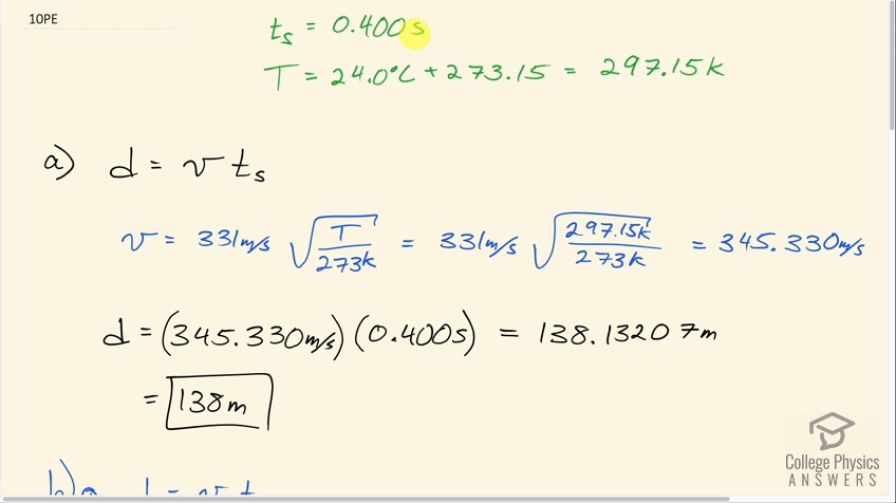 10PE
ts = 0.400s
T = 24.0°C + 273.15 = 297.15k
a) d = v ts
v = 331m/s √(T/273k) = 331m/s √(297.15k/273k) = 345.330m/s
d = (345.330m/s)(0.400s) = 138.13207m
= 138m
College Physics
ANSWERS